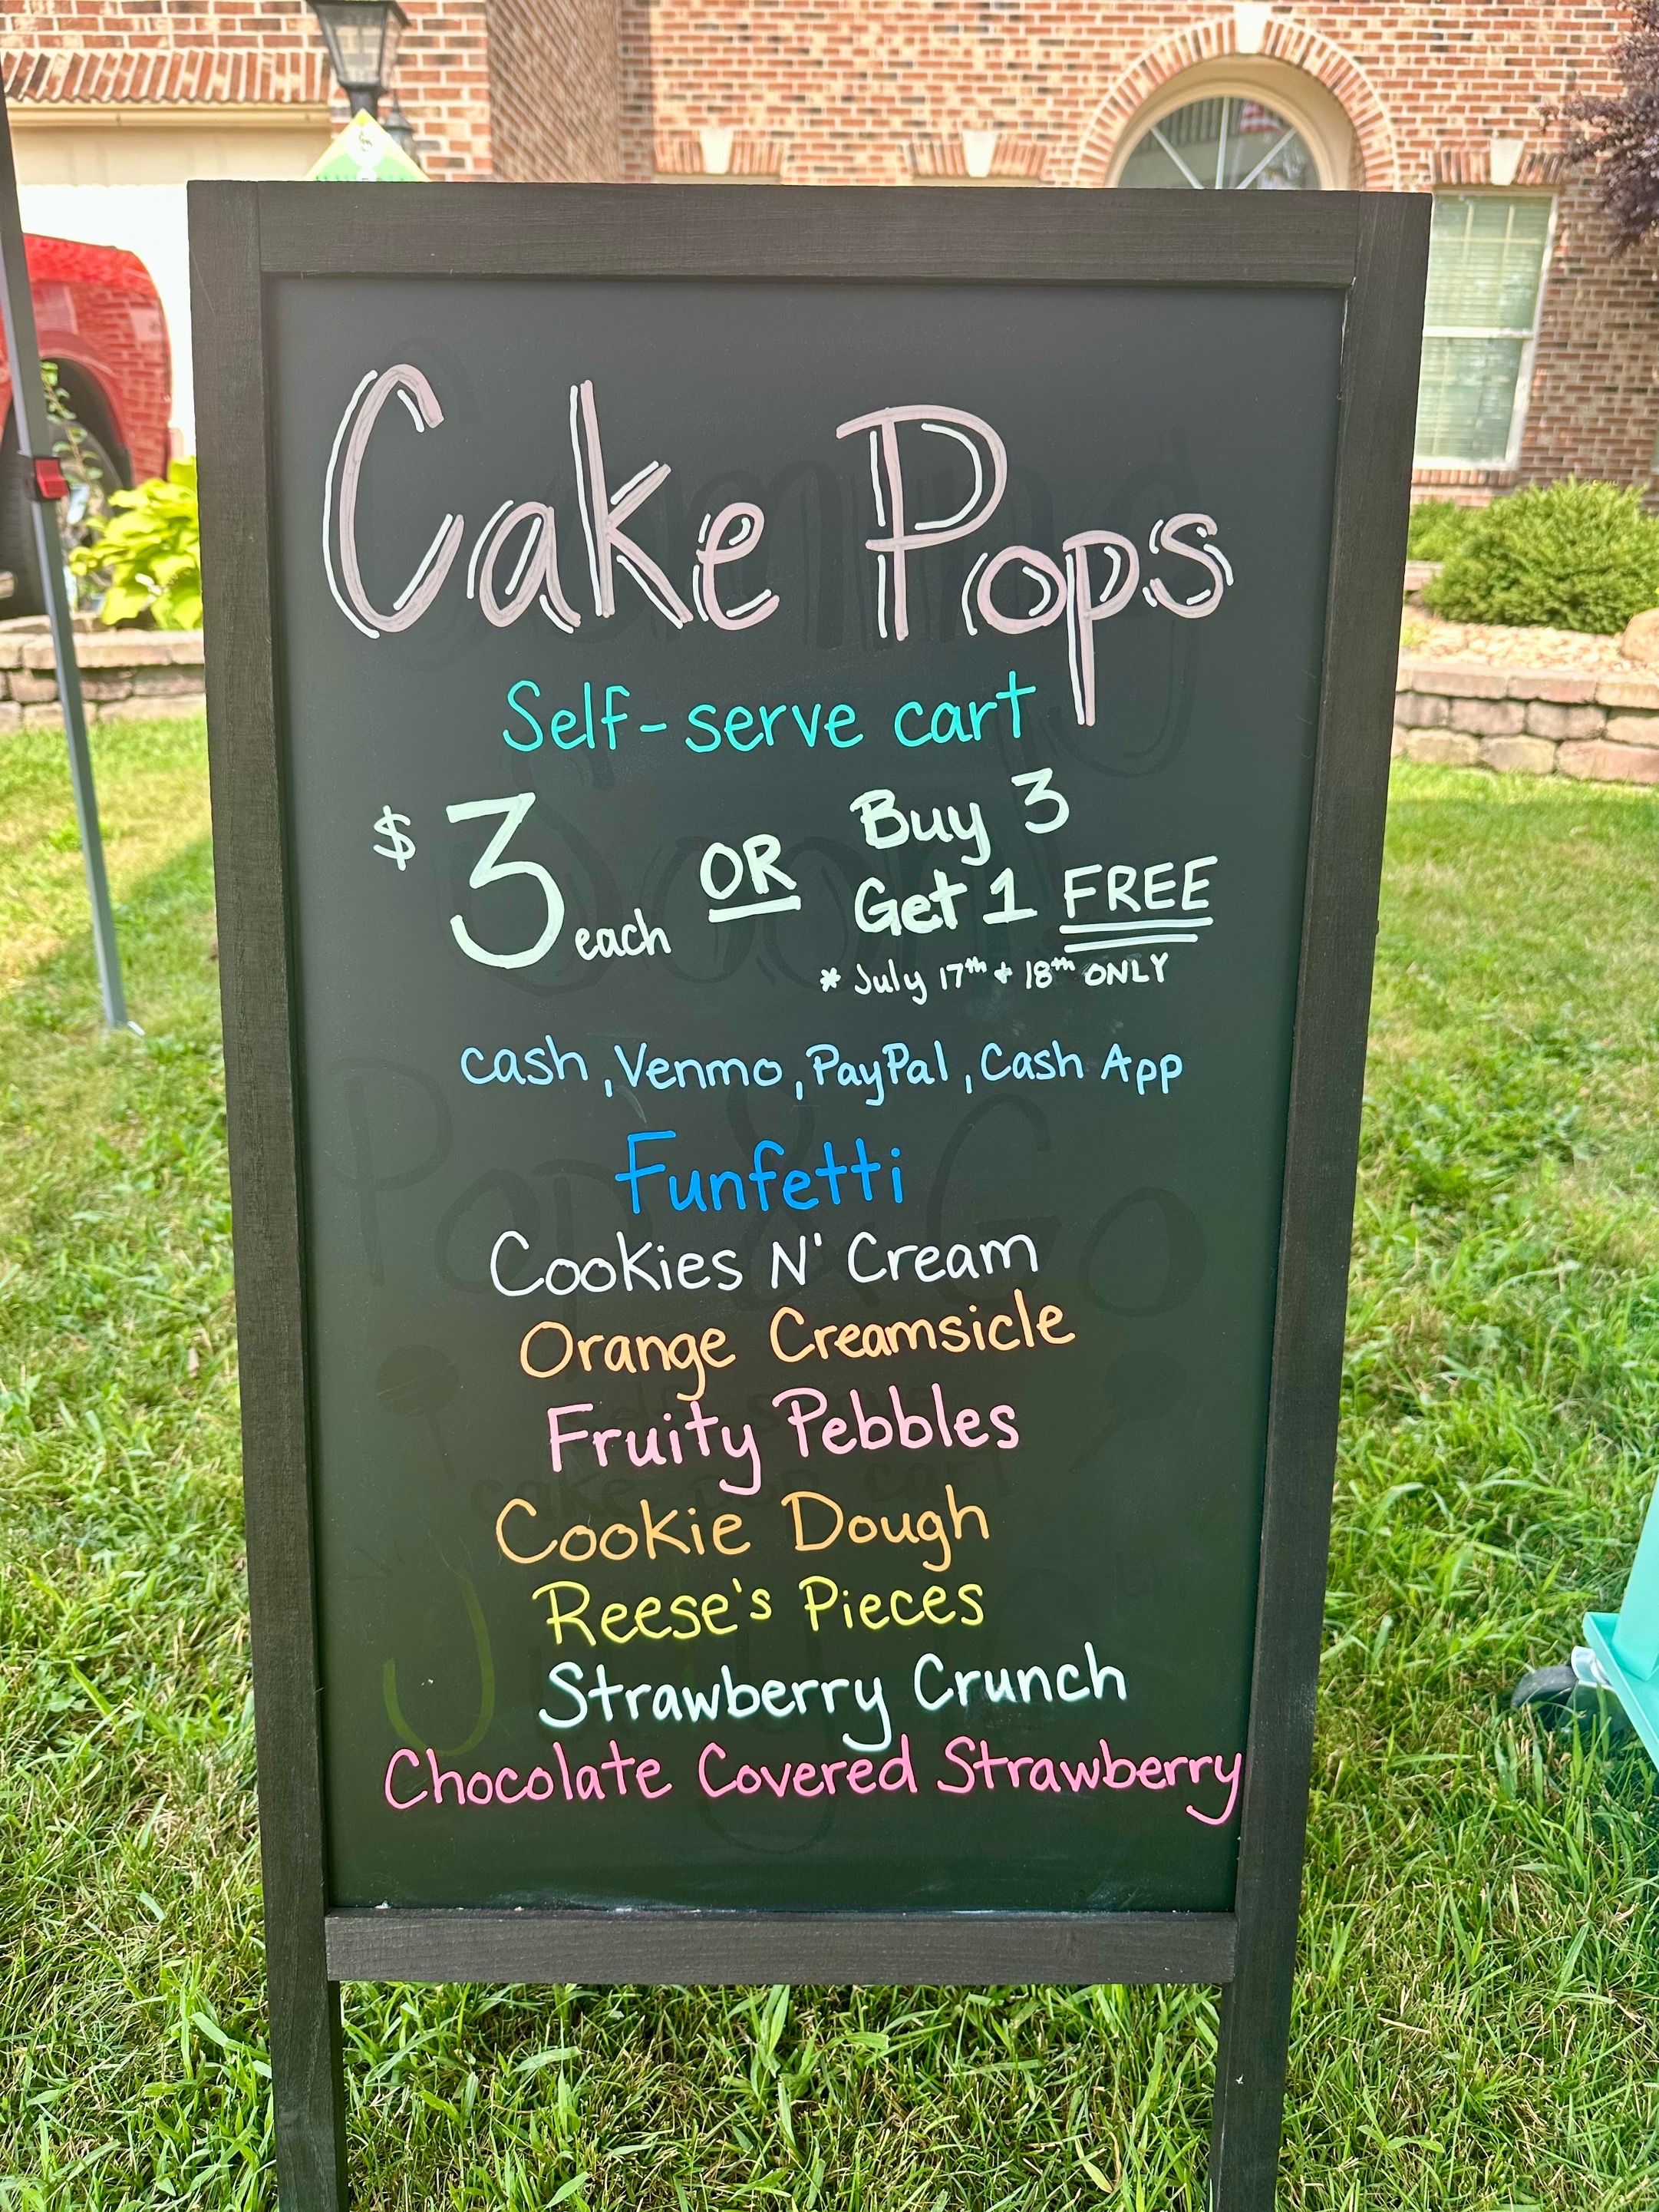 Cake Pops
Self-serve cart
$3 each OR Buy 3
Get 1 FREE
* July 17th + 18th ONLY
cash, Venmo, PayPal, Cash App
Funfetti
Cookies N' Cream
Orange Creamsicle
Fruity Pebbles
Cookie Dough
Reese's Pieces
Strawberry Crunch
Chocolate Covered Strawberry
Coming
Soon!
Pop & Go
self serve
cake pop cart